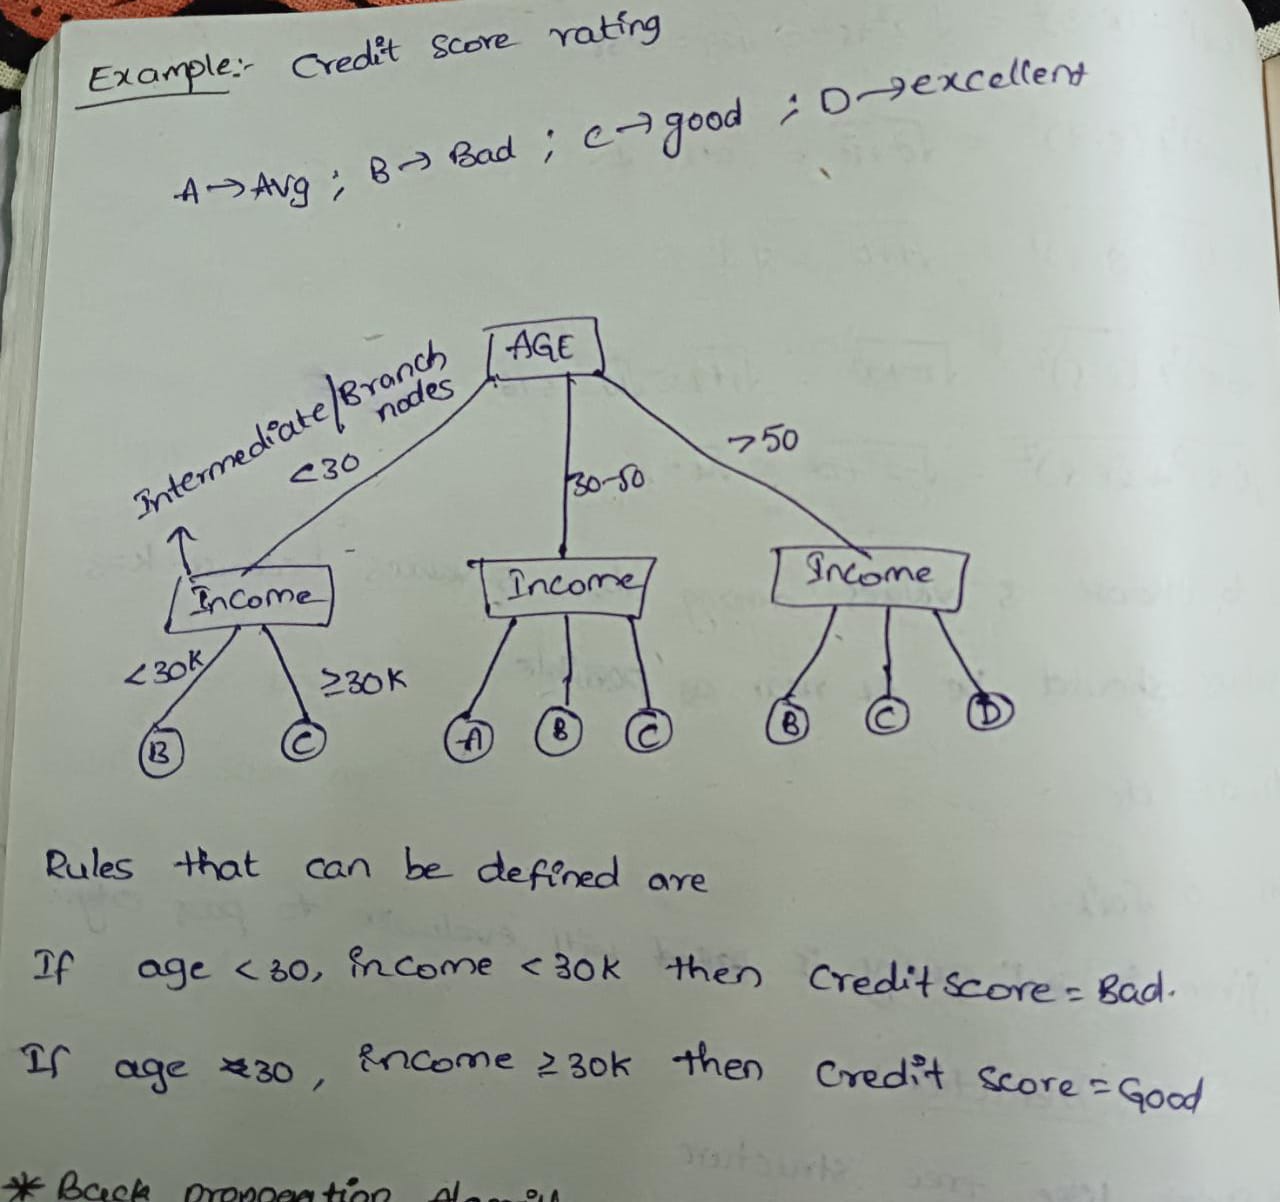 Example:- Credit Score rating
A→Avg ; B→Bad ; C→good ; D→excellent
AGE
Intermediate/Branch
nodes
<30
30-50
>50
Income
Income
Income
<30K
≥30K
B
C
A
B
C
B
C
D
Rules that can be defined are
If age <30, income <30K then Credit Score = Bad.
If age 30, income ≥30K then Credit Score = Good
* Back propagation